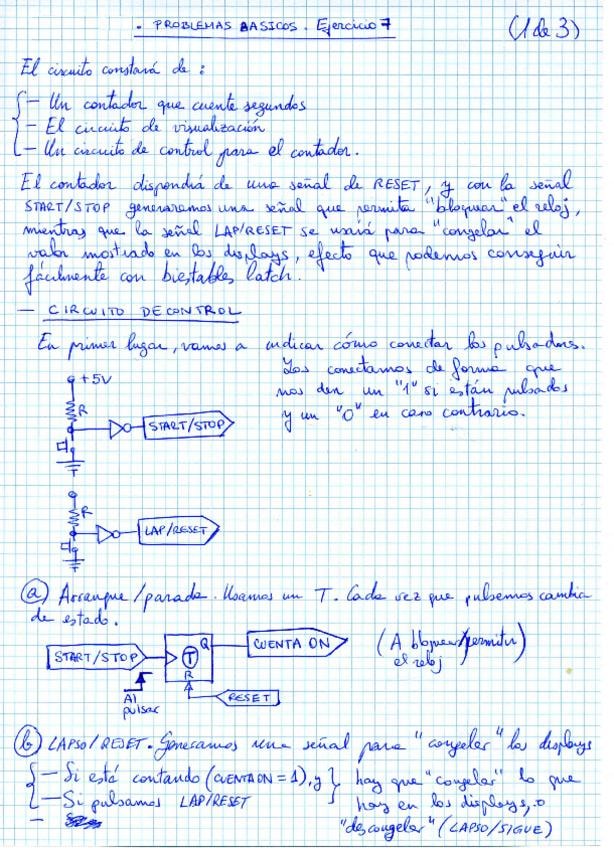 . PROBLEMAS BASICOS. Ejercicio 7
(1 de 3)
El circuito constará de :
— Un contador que cuente segundos
— El circuito de visualización
— Un circuito de control para el contador.
El contador dispondrá de una señal de RESET, y con la señal
START/STOP generaremos una señal que permita "bloquear" el reloj,
mientras que la señal LAP/RESET se usará para "congelar" el
valor mostrado en los displays, efecto que podemos conseguir
fácilmente con biestables latch.
— CIRCUITO DE CONTROL
En primer lugar, vamos a indicar cómo conectar los pulsadores.
Los conectamos de forma que
nos den un "1" si están pulsados
y un "0" en caso contrario.
+5V
R
START/STOP
R
LAP/RESET
(a) Arranque/parada. Usamos un T. Cada vez que pulsemos cambia
de estado.
START/STOP
T
Q
R
CUENTA ON
(A bloquear/permitir
el reloj)
Al
pulsar
RESET
(b) LAPSO/RESET. Generamos una señal para "congelar" los displays
— Si está contando (CUENTA ON = 1), y
— Si pulsamos LAP/RESET
—
hay que "congelar" lo que
hay en los displays, o
"descongelar" (LAPSO/SIGUE)